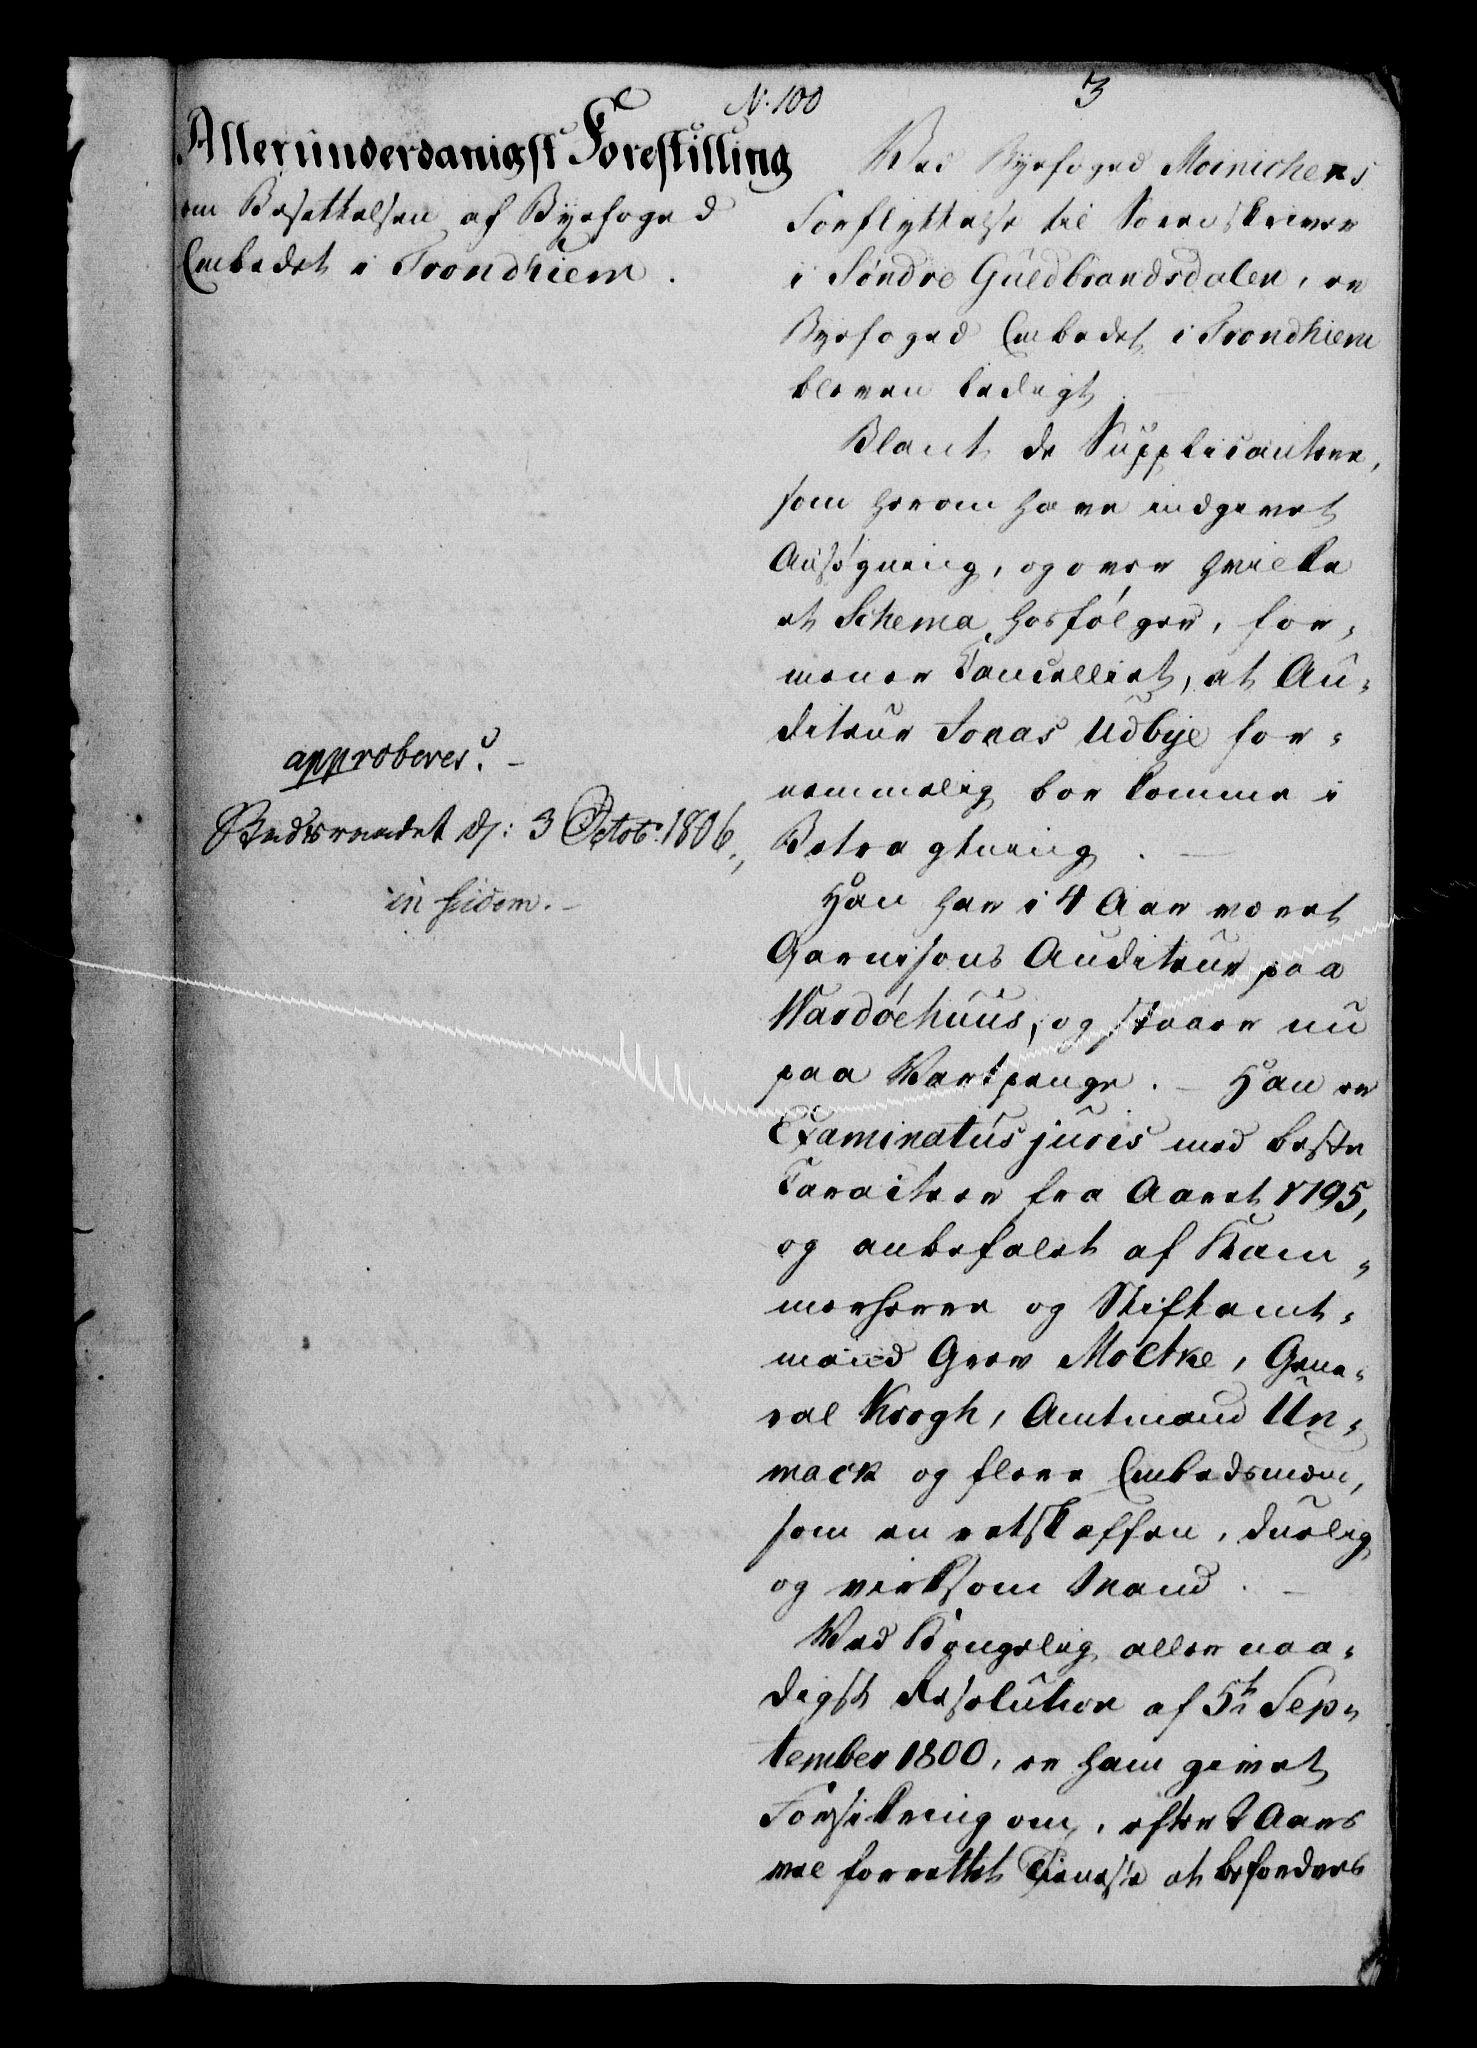 N. 100
3
Allerunderdanigst Forestilling
om Besættelsen af Byefoged
Embedet i Trondhiem.
approberes. -
Rendsweadet d: 3 Octob: 1806.,
in fidem. -
Ved Byefoged Moinichens
Forflyttelse til Sorenskriver
i Søndre Guldbrandsdalen, er
Byefoged Embedet i Trondhiem
bleven ledigt.
Blant de Supplicantere,
som herom have indgivet
Ansøgning, og over hvilke
et Schema hosfølger, for-
mener Cancelliet, at Au-
diteur Jonas Udbye for-
nemmelig bør komme i
Betragtning. -
Han har i 4 Aar været
Garnisons Auditeur paa
Wardøehuus, og staaer nu
paa Vartpenge. - Han er
Examinatus juris med beste
Caracteer fra Aaret 1795,
og anbefalet af Kam-
merherre og Stiftamt-
mand Grev Moltke, Gene-
ral Krogh, Amtmand Un-
mack og flere Embedsmæn,
som en retskaffen, duelig
og virksom Mand. -
Ved Kongelig allernaa-
digst Resolution af 5te Sep-
tember 1800, er ham givet
Forsikring om, efter 2 Aars
vel forrettet Tieneste at befordres